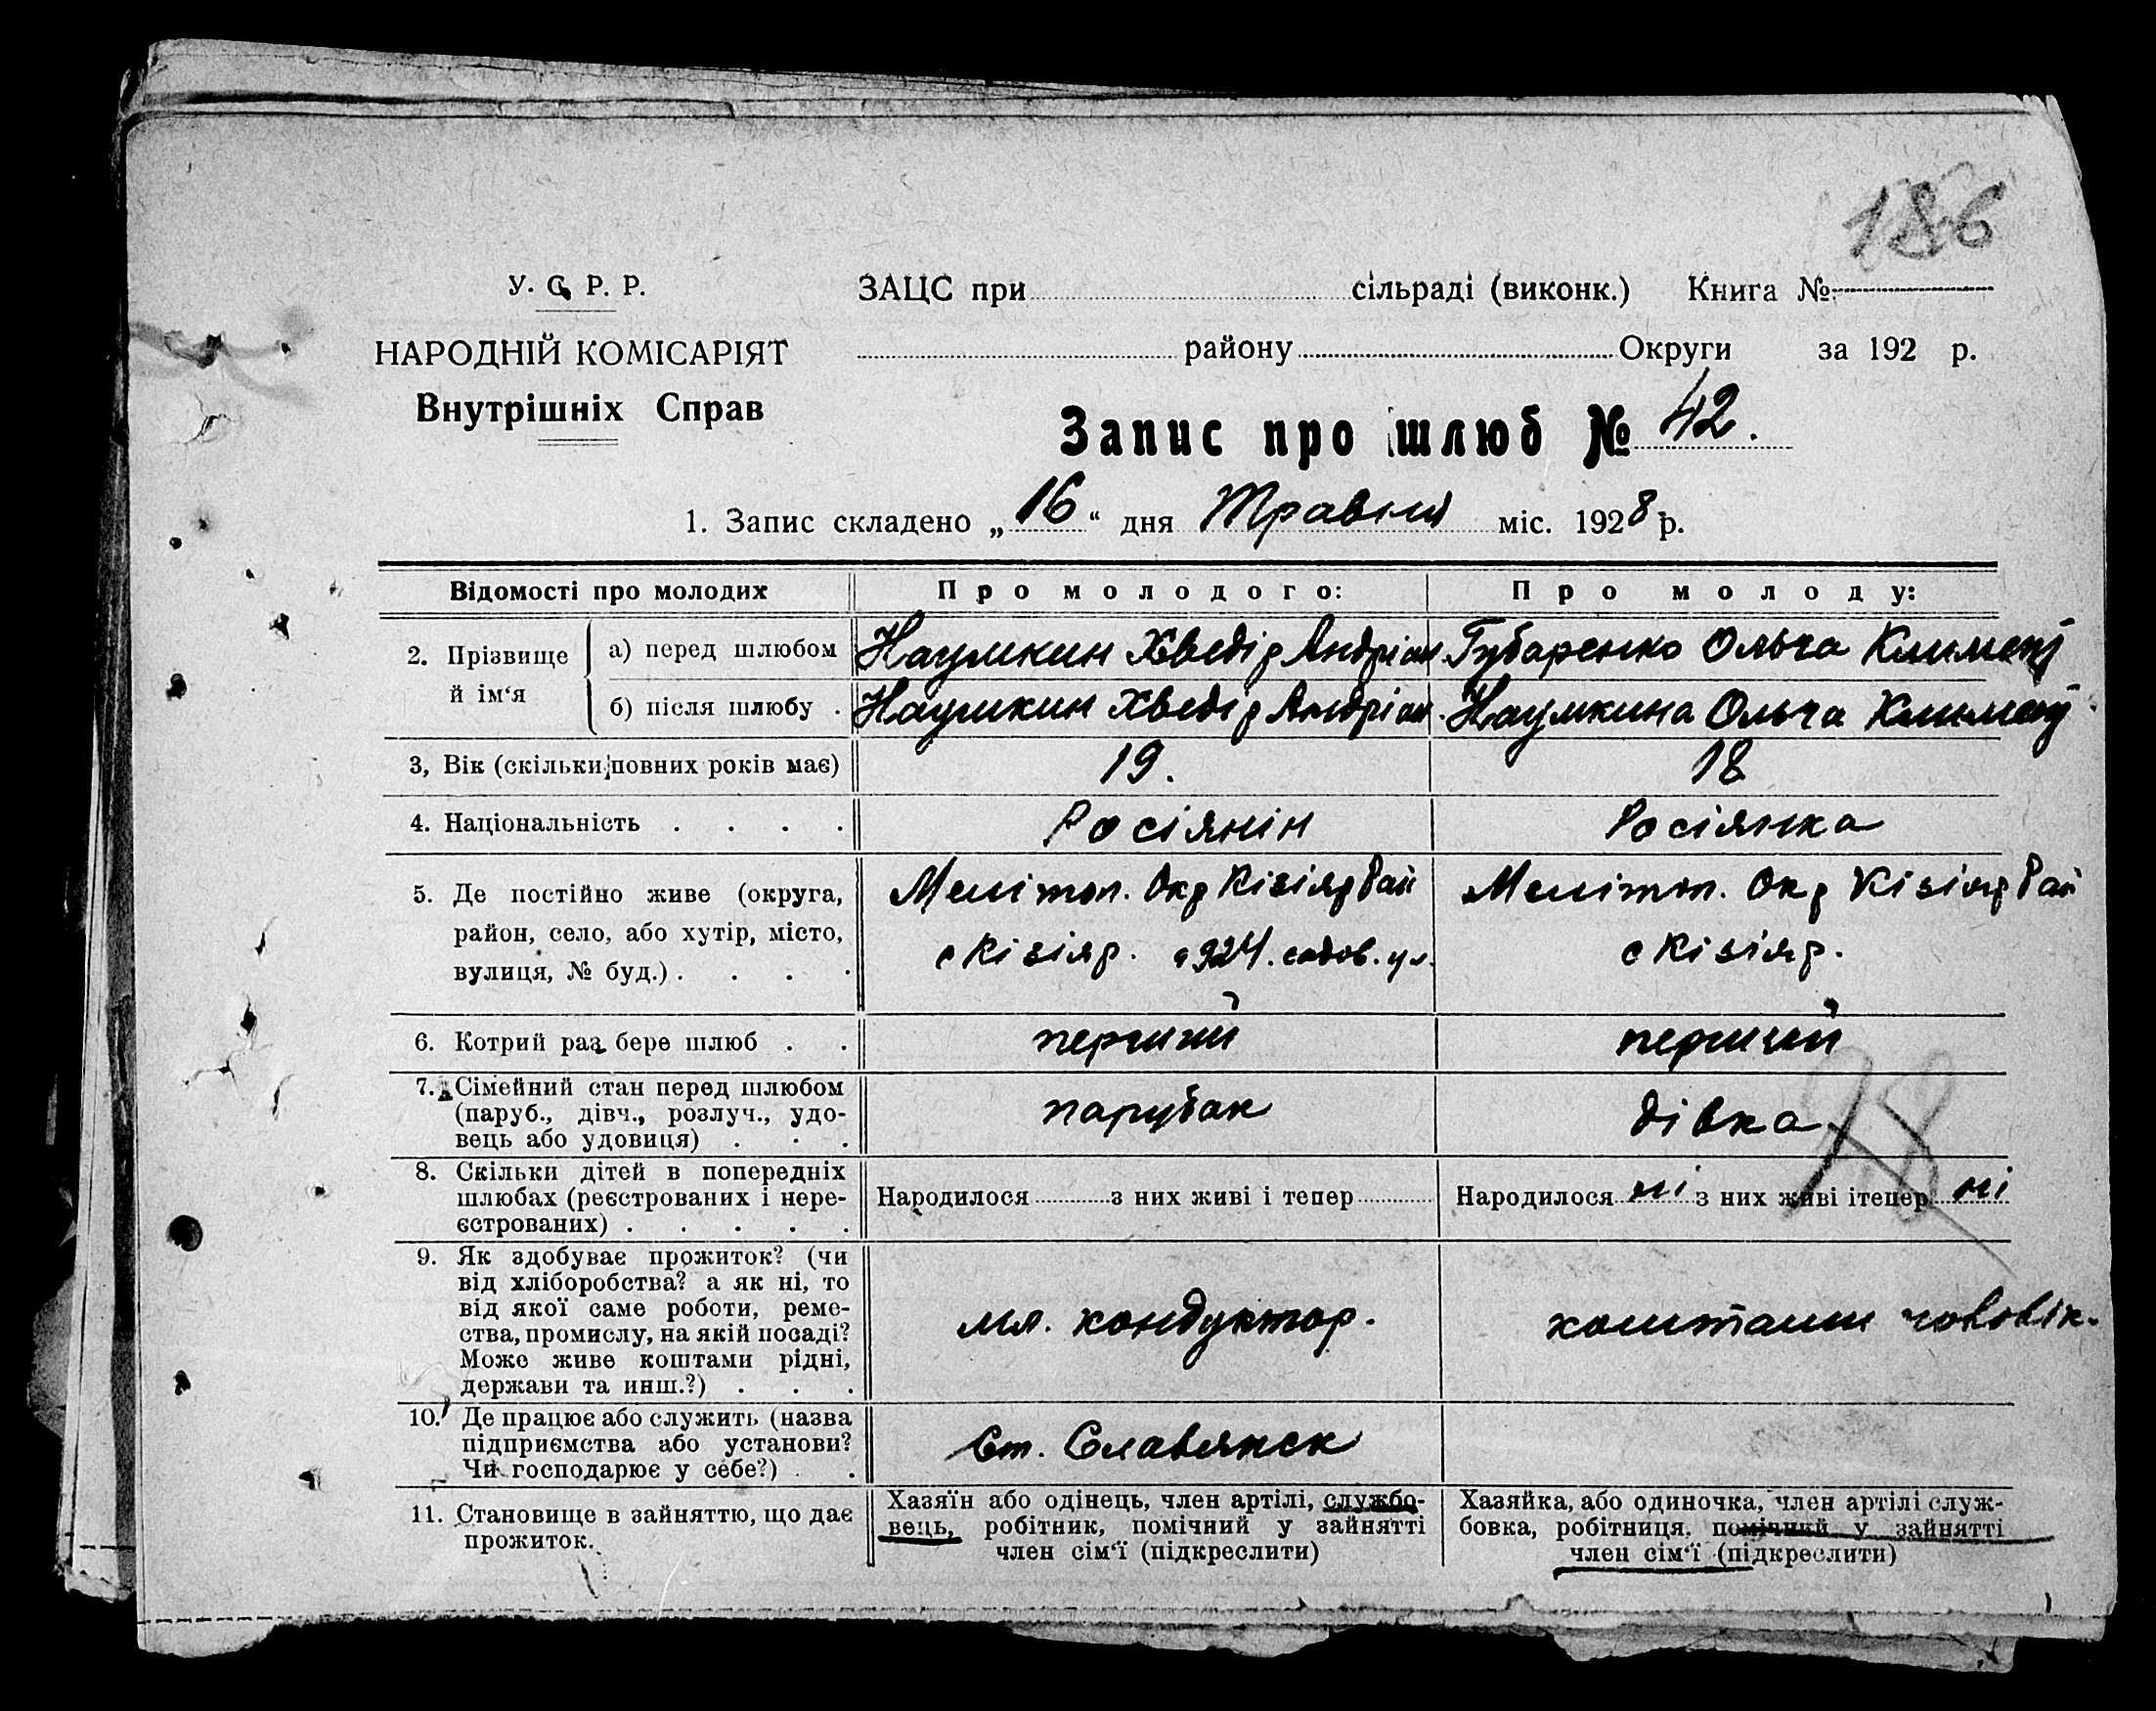 186
У. С. Р. Р.
НАРОДНІЙ КОМІСАРІЯТ
Внутрішніх Справ
ЗАЦС при сільраді (виконк.) Книга №
району Округи за 192 р.
Запис про шлюб № 42.
1. Запис складено „16“ дня Травня міс. 1928 р.
Відомості про молодих
Про молодого:
Про молоду:
2. Прізвище й ім‘я
а) перед шлюбом
Наумкин Хведір Андріан
Губаренко Ольга Климент
б) після шлюбу .
Наумкин Хведір Андріан.
Наумкина Ольга Климент
3, Вік (скільки повних років має)
19.
18
4. Національність . . . .
Росіянін
Росіянка
5. Де постійно живе (округа,
район, село, або хутір, місто,
вулиця, № буд.) . . . .
Мелітоп. Окр Кізіяр Рай
с Кізіяр. 924. садов. ул.
Мелітоп. Окр Кізіяр Рай
с Кізіяр.
6. Котрий раз бере шлюб . .
перший
перший
7. Сімейний стан перед шлюбом
(паруб., дівч., розлуч., удо-
вець або удовиця) . . .
парубак
дівка
8. Скільки дітей в попередніх
шлюбах (реєстрованих і нере-
єстрованих) . . . . .
Народилося з них живі і тепер
Народилося ні з них живі ітепер ні
9. Як здобуває прожиток? (чи
від хліборобства? а як ні, то
від якої саме роботи, реме-
ства, промислу, на якій посаді?
Може живе коштами рідні,
держави та инш.?) . . .
мл. кондуктор.
коштами чововік.
10. Де працює або служить (назва
підприємства або установи?
Чи господарює у себе?) . .
Ст. Славянск
11. Становище в зайняттю, що дає
прожиток.
Хазяїн або одінець, член артілі, службо-
вець, робітник, помічний у зайнятті
член сім‘ї (підкреслити)
Хазяйка, або одиночка, член артілі служ-
бовка, робітниця. помічний у зайнятті
член сім‘ї (підкреслити)